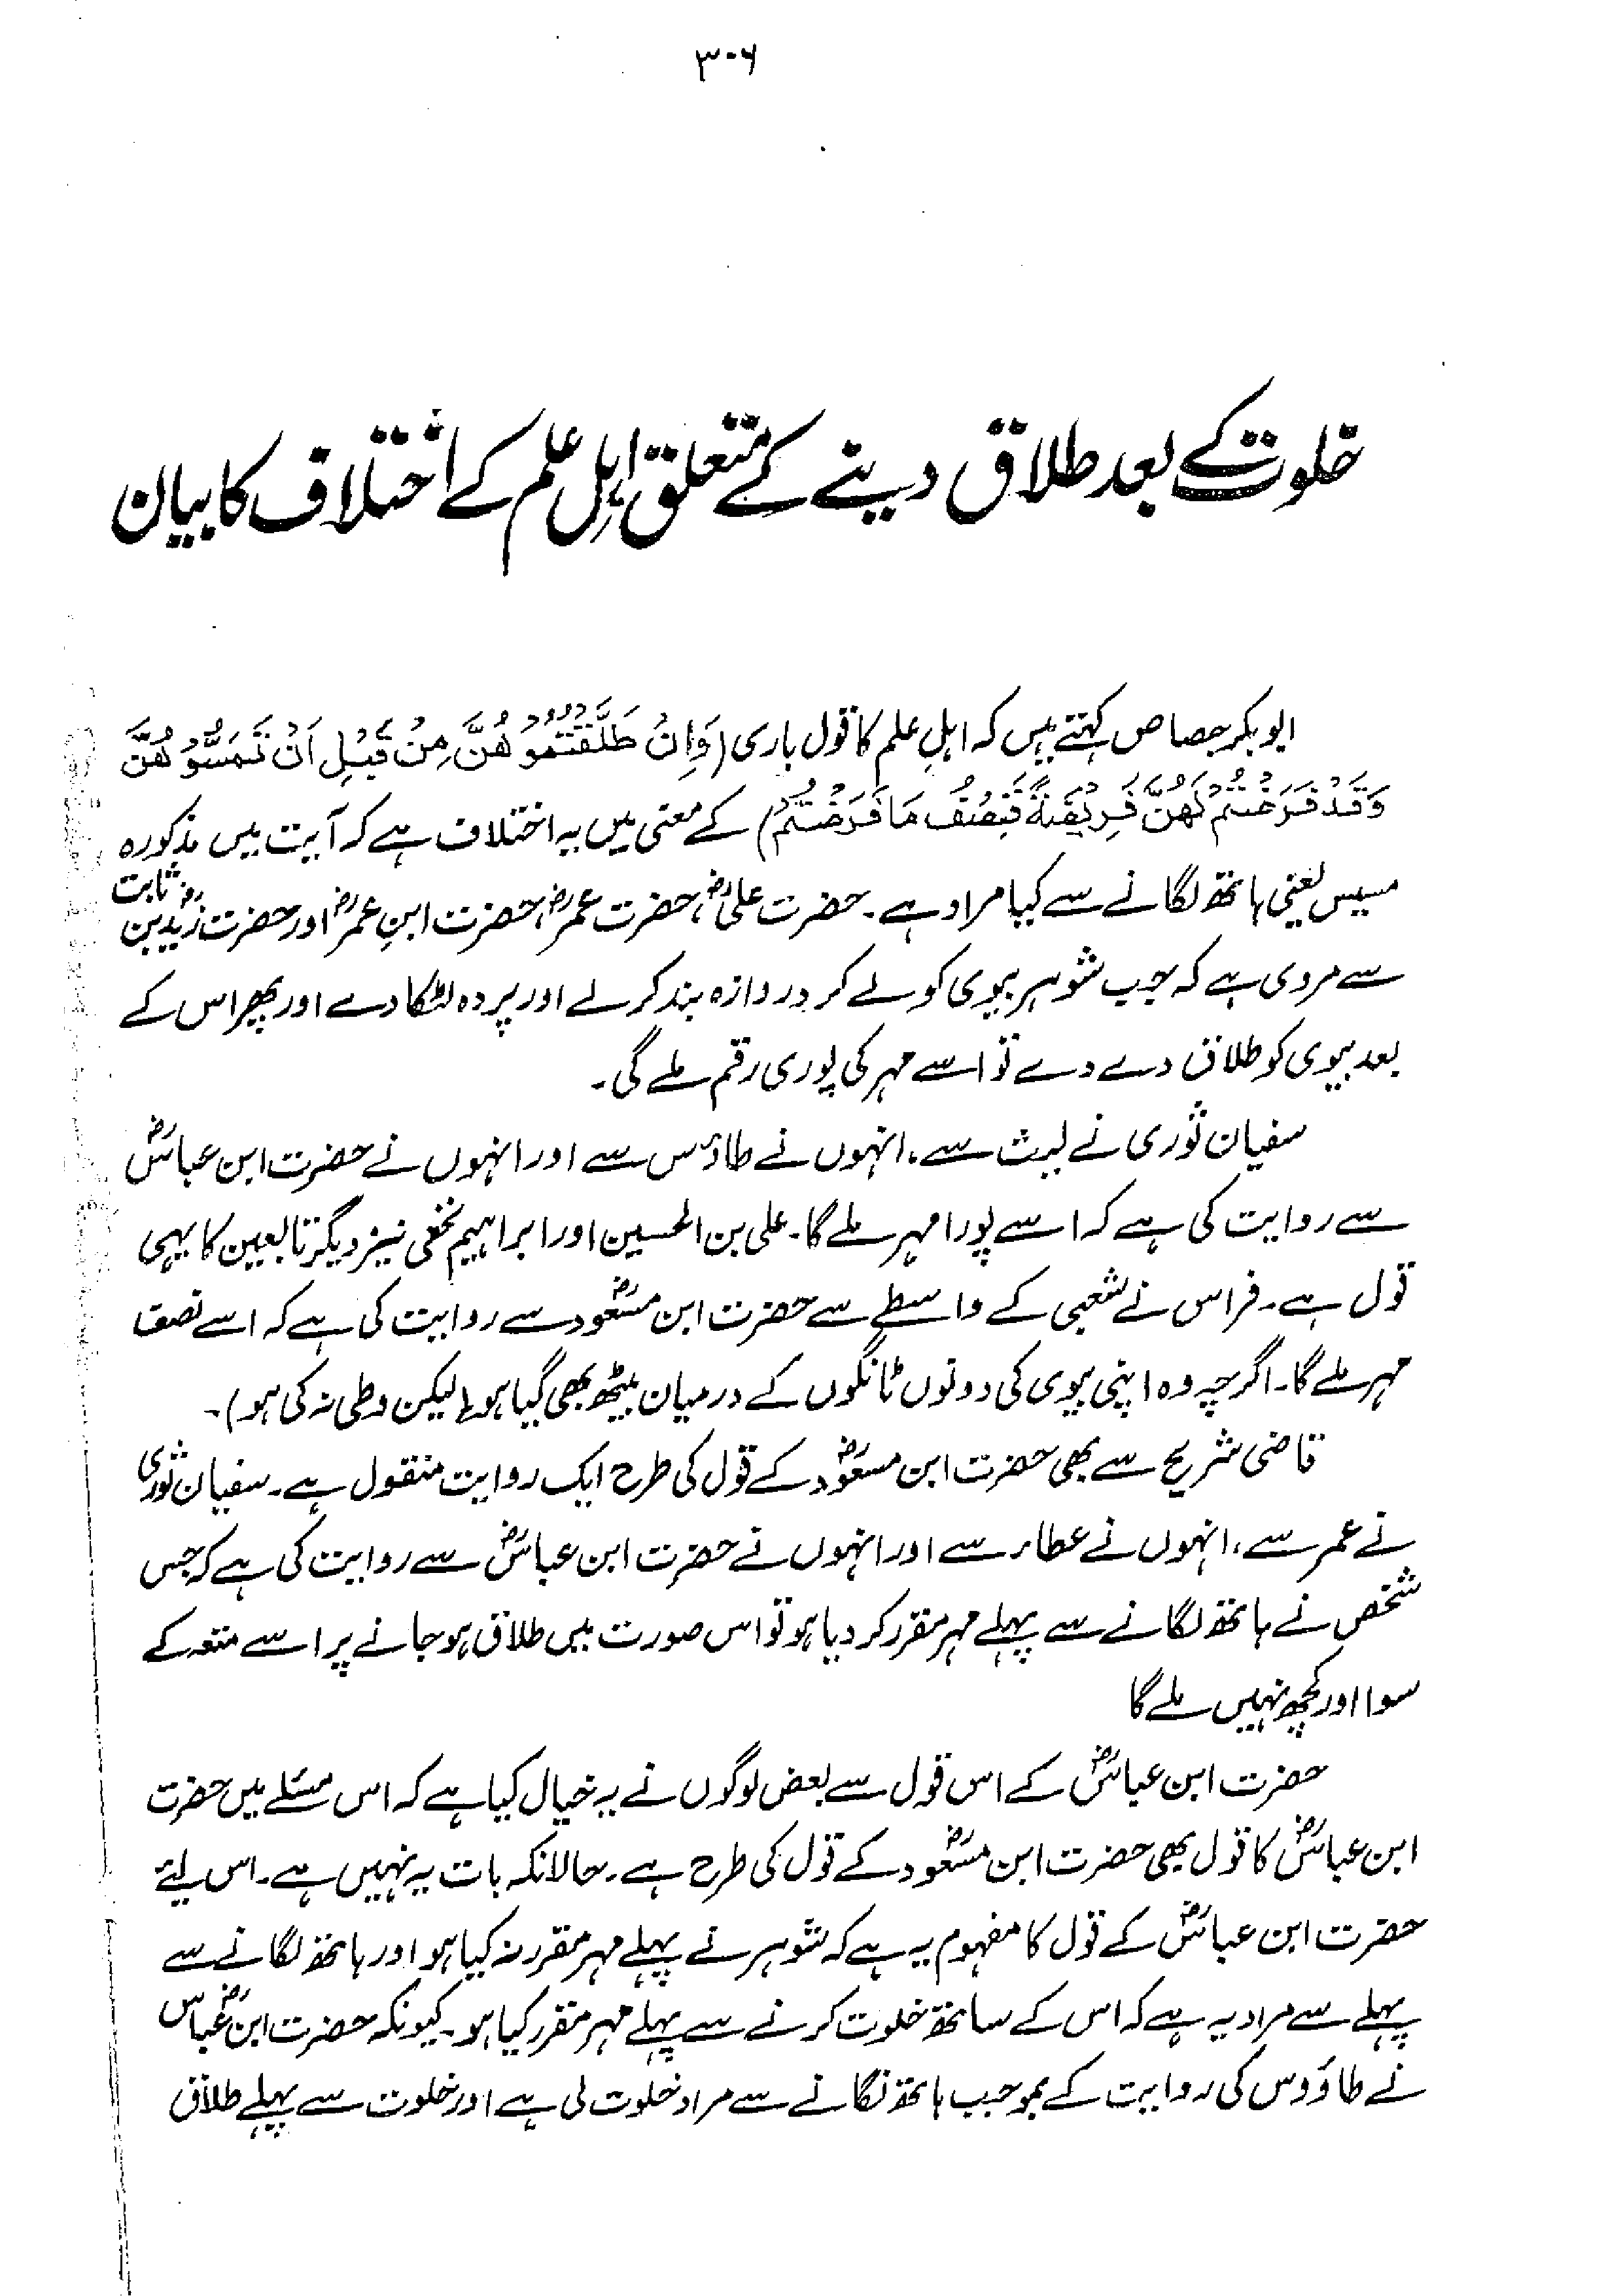 ۳۰۶
خلوت کے بعد طلاق دینے کے متعلق اہل علم کے اختلاف کا بیان
ابو بکر جصاص کہتے ہیں کہ اہلِ علم کا قول باری (وَإِنْ طَلَّقْتُمُوهُنَّ مِنْ قَبْلِ اَنْ تَمَسُّوهُنَّ
وَقَدْ فَرَضْتُمْ لَهُنَّ فَرِيْضَةً فَنِصْفُ مَا فَرَضْتُمْ) کے معنی میں یہ اختلاف ہے کہ آیت میں مذکورہ
مسیس یعنی ہاتھ لگانے سے کیا مراد ہے۔ حضرت علیؓ، حضرت عمرؓ، حضرت ابنِ عمرؓ اور حضرت زیدؓ بن ثابت
سے مروی ہے کہ جب شوہر بیوی کو لے کر دروازہ بند کر لے اور پردہ لٹکا دے اور پھر اس کے
بعد بیوی کو طلاق دے دے تو اسے مہر کی پوری رقم ملے گی۔
سفیان ثوری نے لیث سے، انہوں نے طاؤس سے اور انہوں نے حضرت ابن عباسؓ
سے روایت کی ہے کہ اسے پورا مہر ملے گا۔ علی بن الحسین اور ابراہیم نخعی نیز دیگر تابعین کا یہی
قول ہے۔ فراس نے شعبی کے واسطے سے حضرت ابن مسعودؓ سے روایت کی ہے کہ اسے نصف
مہر ملے گا۔ اگرچہ وہ اپنی بیوی کی دونوں ٹانگوں کے درمیان بیٹھ بھی گیا ہو (لیکن وطی نہ کی ہو)۔
قاضی شریح سے بھی حضرت ابن مسعودؓ کے قول کی طرح ایک روایت منقول ہے۔ سفیان ثوری
نے عمر سے، انہوں نے عطاء سے اور انہوں نے حضرت ابن عباسؓ سے روایت کی ہے کہ جس
شخص نے ہاتھ لگانے سے پہلے مہر مقرر کر دیا ہو تو اس صورت میں طلاق ہو جانے پر اسے متعہ کے
سوا اور کچھ نہیں ملے گا
حضرت ابن عباسؓ کے اس قول سے بعض لوگوں نے یہ خیال کیا ہے کہ اس مسئلے میں حضرت
ابن عباسؓ کا قول بھی حضرت ابن مسعودؓ کے قول کی طرح ہے۔ حالانکہ بات یہ نہیں ہے۔ اس لیئے
حضرت ابن عباسؓ کے قول کا مفہوم یہ ہے کہ شوہر نے پہلے مہر مقرر نہ کیا ہو اور ہاتھ لگانے سے
پہلے سے مراد یہ ہے کہ اس کے ساتھ خلوت کرنے سے پہلے مہر مقرر کیا ہو۔ کیونکہ حضرت ابن عباسؓ
نے طاؤوس کی روایت کے بموجب ہاتھ لگانے سے مراد خلوت لی ہے اور خلوت سے پہلے طلاق